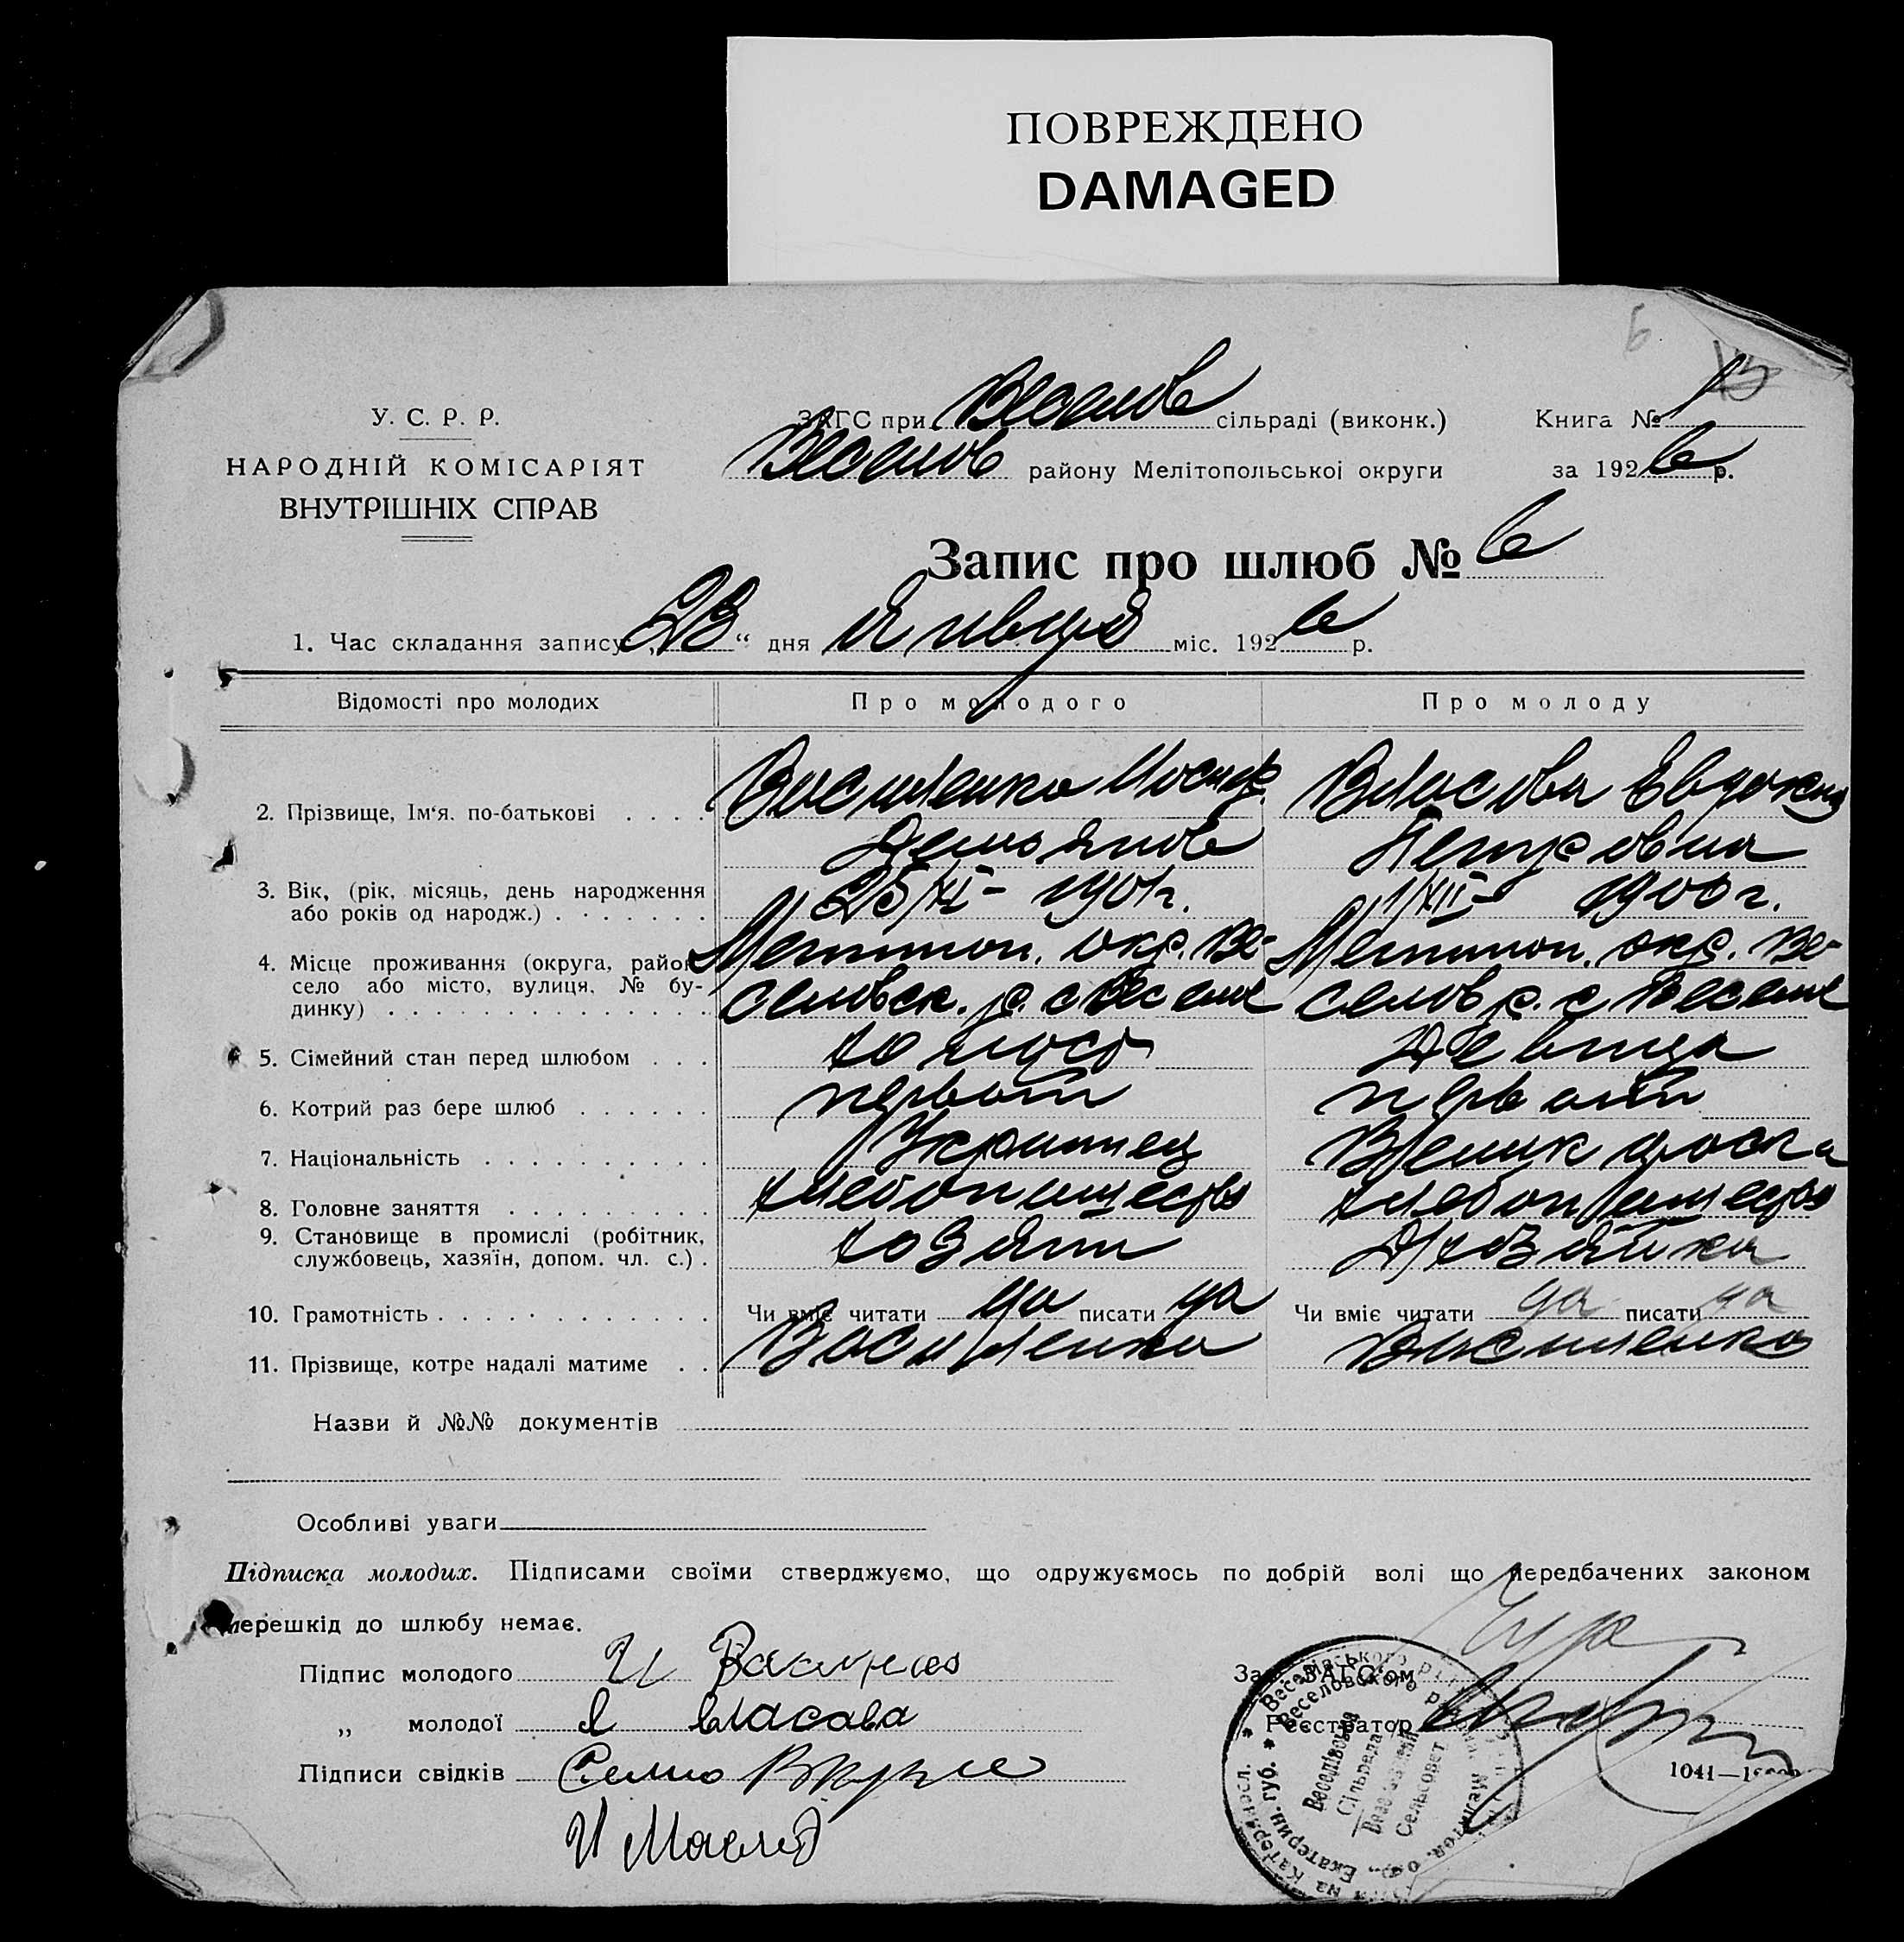 ПОВРЕЖДЕНО
DAMAGED
6
У. С. Р. Р.
НАРОДНІЙ КОМІСАРІЯТ
ВНУТРІШНІХ СПРАВ
ЗАГС при Веселов сільраді (виконк.) Книга №
Веселов району Мелітопольської округи за 1926 р.
Запис про шлюб № 6
1. Час складання запису „23“ дня Января міс. 1926 р.
Відомості про молодих Про молодого Про молоду
2. Прізвище, Ім‘я, по-батькові Василенко Иосиф Власова Евдокия
Демьянов Петровна
3. Вік, (рік, місяць, день народження 25/XI- 1901 г. 1/XII- 1900 г.
або років од народж.)
4. Місце проживання (округа, район, Мелитоп. окр. Ве- Мелитоп. окр. Ве-
село або місто, вулиця, № бу- селовск. р. с Веселое селов р. с Веселое
динку)
5. Сімейний стан перед шлюбом холост девица
6. Котрий раз бере шлюб первый первый
7. Національність Украинец Великоросска
8. Головне заняття хлебопашество хлебопашество
9. Становище в промислі (робітник, хозяин хозяйка
службовець, хазяїн, допом. чл. с.)
10. Грамотність Чи вміє читати да писати да Чи вміє читати да писати да
11. Прізвище, котре надалі матиме Василенко Василенко
Назви й №№ документів
Особливі уваги
Підписка молодих. Підписами своїми стверджуємо, що одружуємось по добрій волі що передбачених законом
перешкід до шлюбу немає.
Підпис молодого И Василенко
„ молодої Я Власова
Зав. ЗАГС‘ом
Реєстратор
Підписи свідків
И Маслов
Веселівська
Сільрада
Веселовский
Сельсовет
1041—